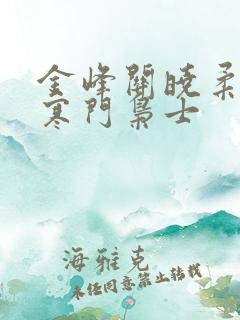 金峰關曉柔
寒門梟士
海雅克
未經同意禁止轉載